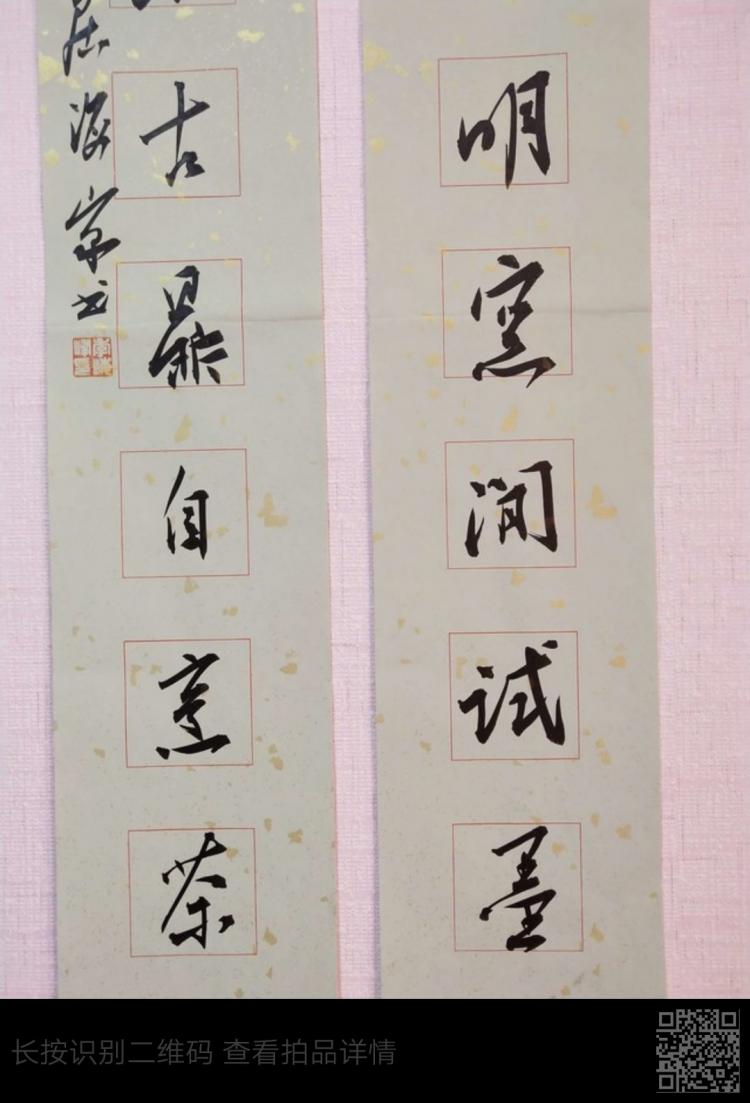 明窓閒试墨
古鼎自烹茶
海崇书
长按识别二维码 查看拍品详情